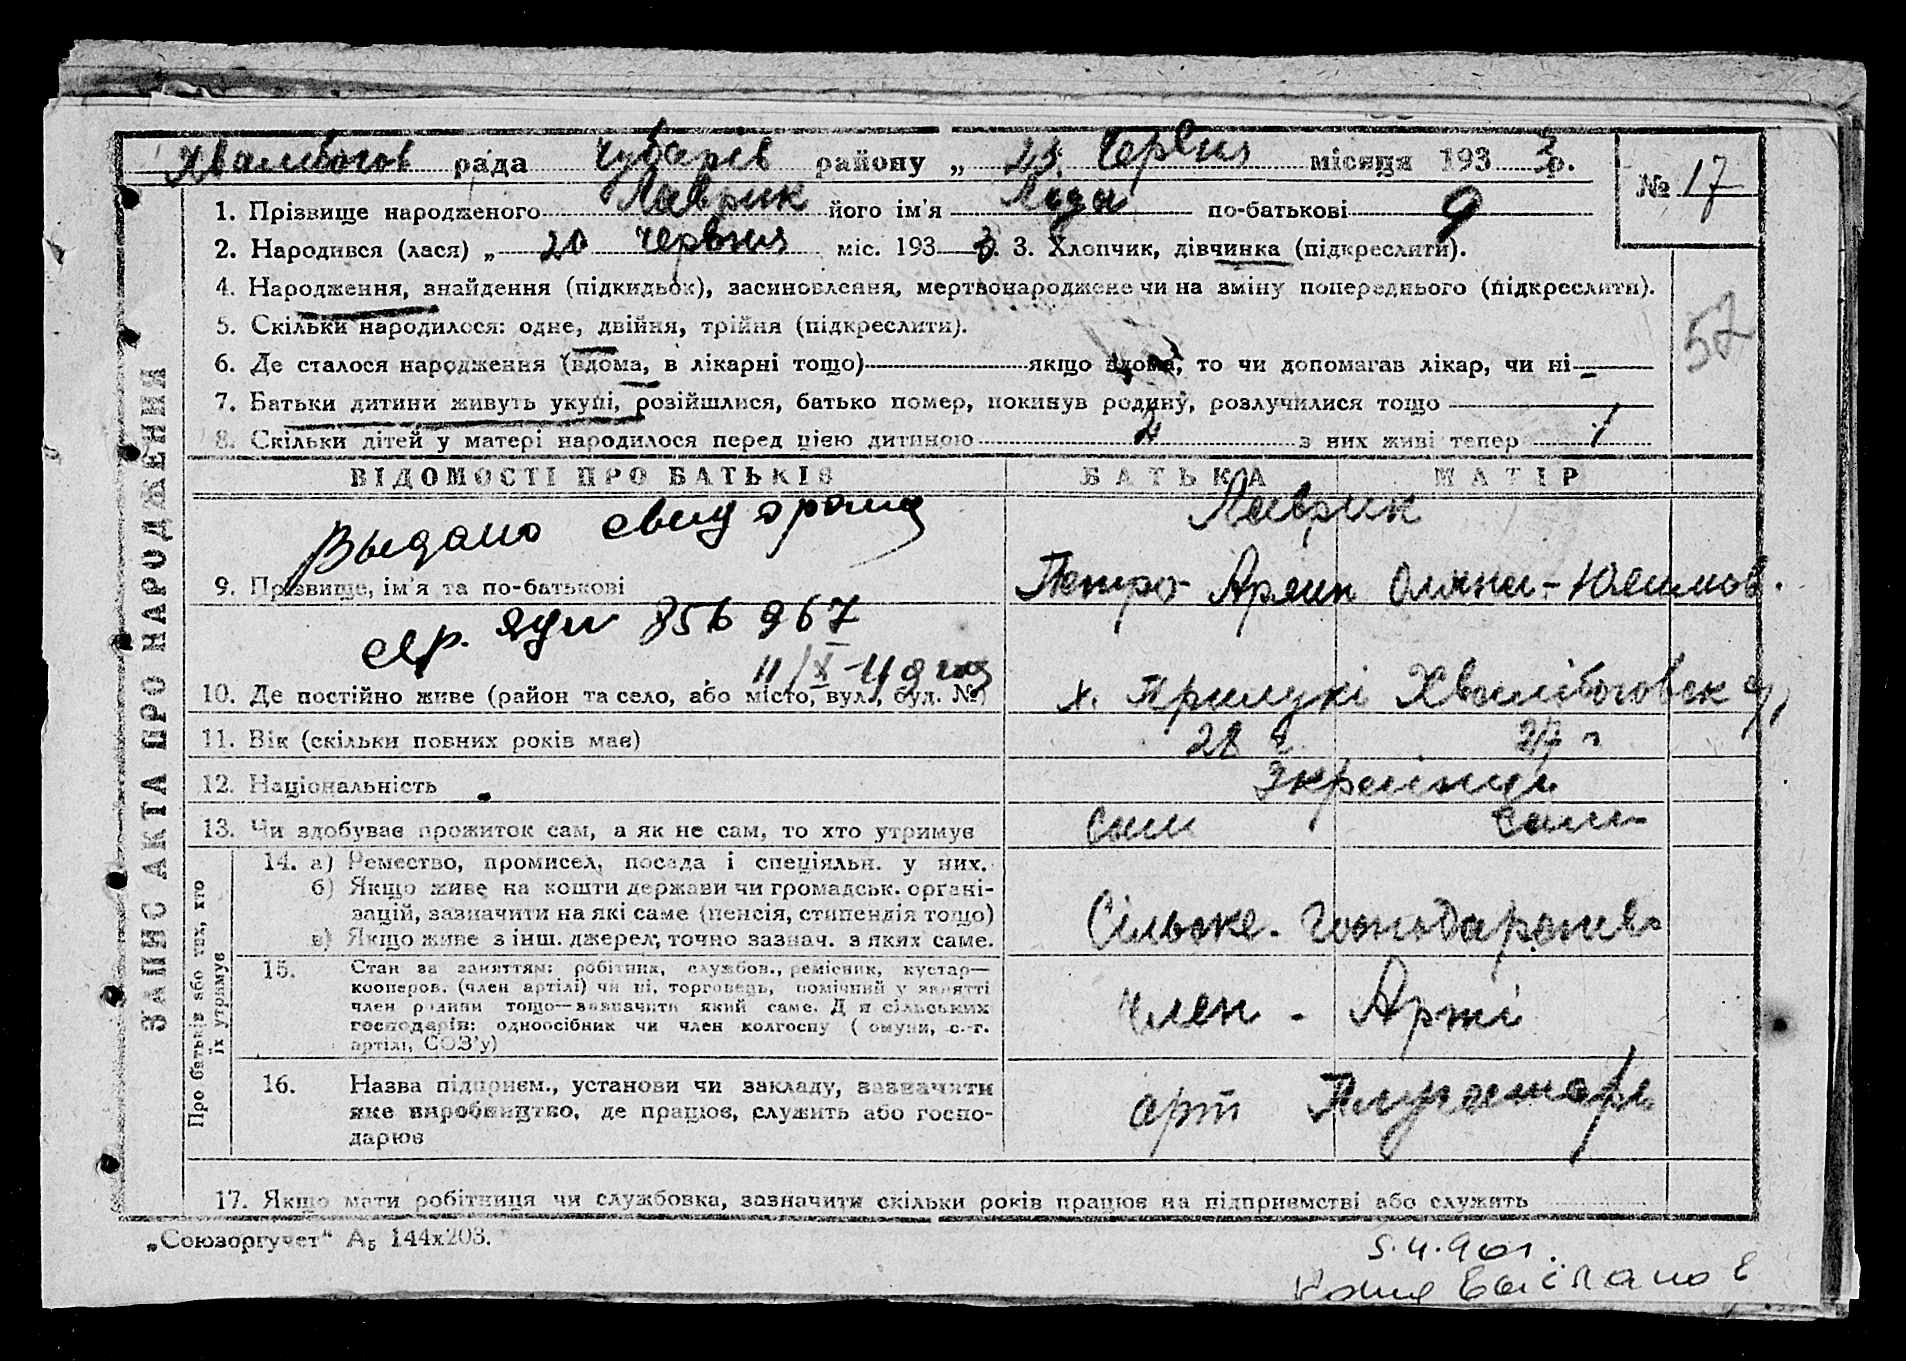 Хвалибогов рада Чубарів району „ 25 Червня місяця 193 3 р.
№ 17
1. Прізвище народженого Лаврик його ім'я Ліда по-батькові
2. Народився (лася) „ 20 червня міс. 193 3. 3. Хлопчик, дівчинка (підкреслити).
4. Народження, знайдення (підкидьок), засиновлення, мертвонароджене чи на зміну попереднього (підкреслити).
57
5. Скільки народилося: одне, двійня, трійня (підкреслити).
6. Де сталося народження (вдома, в лікарні тощо) якщо вдома, то чи допомагав лікар, чи ні
7. Батьки дитини живуть укупі, розійшлися, батько помер, покинув родину, розлучилися тощо
8. Скільки дітей у матері народилося перед цією дитиною 2 з них живі тепер 1
ЗАПИС АКТА ПРО НАРОДЖЕННЯ
ВІДОМОСТІ ПРО БАТЬКІВ БАТЬКА МАТІР
Лаврик
Выдано
9. Прізвище, ім'я та по-батькові Петро
856967
11/X-49 год
10. Де постійно живе (район та село, або місто, вул., буд. №) х. Прилукі Хвалібоговск
11. Вік (скільки повних років має) 28 г. 27 г
12. Національність Украінці
13. Чи здобуває прожиток сам, а як не сам, то хто утримує сам сам
Про батьків або тих, хто їх утримує
14. а) Ремество, промисел, посада і спеціяльн. у них.
б) Якщо живе на кошти держави чи громадськ. органі-
зацій, зазначити на які саме (пенсія, стипендія тощо) Сільске. Господарство
в) Якщо живе з інш. джерел, точно зазнач. з яких саме.
15. Стан за заняттям: робітник, службов., ремісник, кустар—
кооперов. (член артілі) чи ні, торговець, помічний у занятті
член родини тощо—зазначити який саме. Для сільських член - Арті
господарів: одноосібник чи член колгоспу (комуни, с.-г.
артілі, СОЗ'у)
16. Назва підприєм., установи чи закладу, зазначити
яке виробництво, де працює, служить або госпо- арт Плугатарь
дарює
17. Якщо мати робітниця чи службовка, зазначити скільки років працює на підприємстві або служить
„Союзоргучет“ А5 144x203.
5.4.90г.